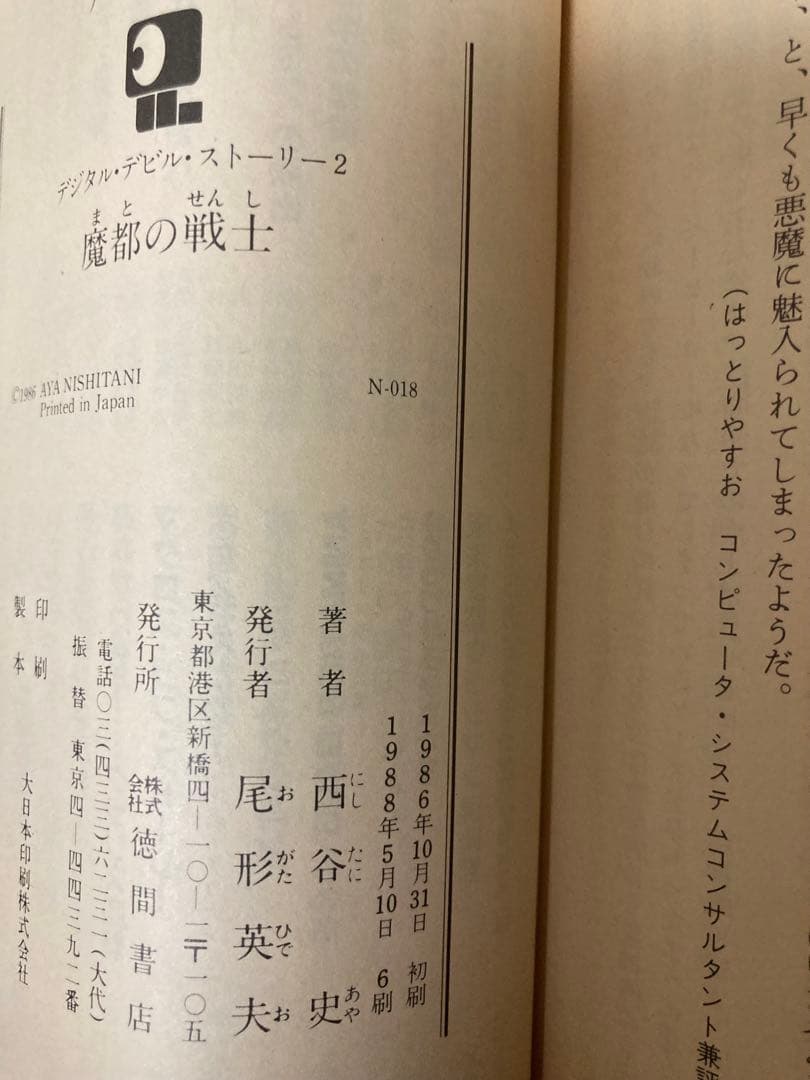 、と、早くも悪魔に魅入られてしまったようだ。
（はっとりやすお　コンピュータ・システムコンサルタント兼評
デジタル・デビル・ストーリー2
ま と せん し
魔都の戦士
©1986 AYA NISHITANI
Printed in Japan
N-018
1986年10月31日 初刷
1988年5月10日 6刷
著者 西谷 史
にし たに あや
発行者 尾形英夫
お がた ひで お
東京都港区新橋四―一〇―一〒一〇五
発行所 株式会社 徳間書店
電話〇三(四三三)六二三一(大代)
振替 東京四―四四三九二番
印刷
製本 大日本印刷株式会社